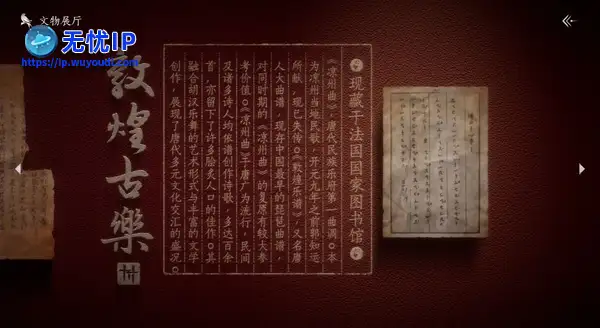 文物展厅
无忧IP
https://ip.wuyoudl.com
敦煌古樂
现藏于法国国家图书馆
《凉州曲》,唐代民族乐府第一曲调。本
为凉州当地民歌,开元九年之前郭知运
所献,现已失传。《敦煌乐谱》,又名唐
人大曲谱,现存中国最早的琵琶曲谱,
对同时期的《凉州曲》的复原有较大参
考价值。《凉州曲》于唐广为流行,民间
及诸多诗人均依谱创作诗歌,多达百余
首,亦留下了许多脍炙人口的佳作。其
融合胡汉乐舞的艺术形式与丰富的文学
创作,展现了唐代多元文化交汇的盛况。